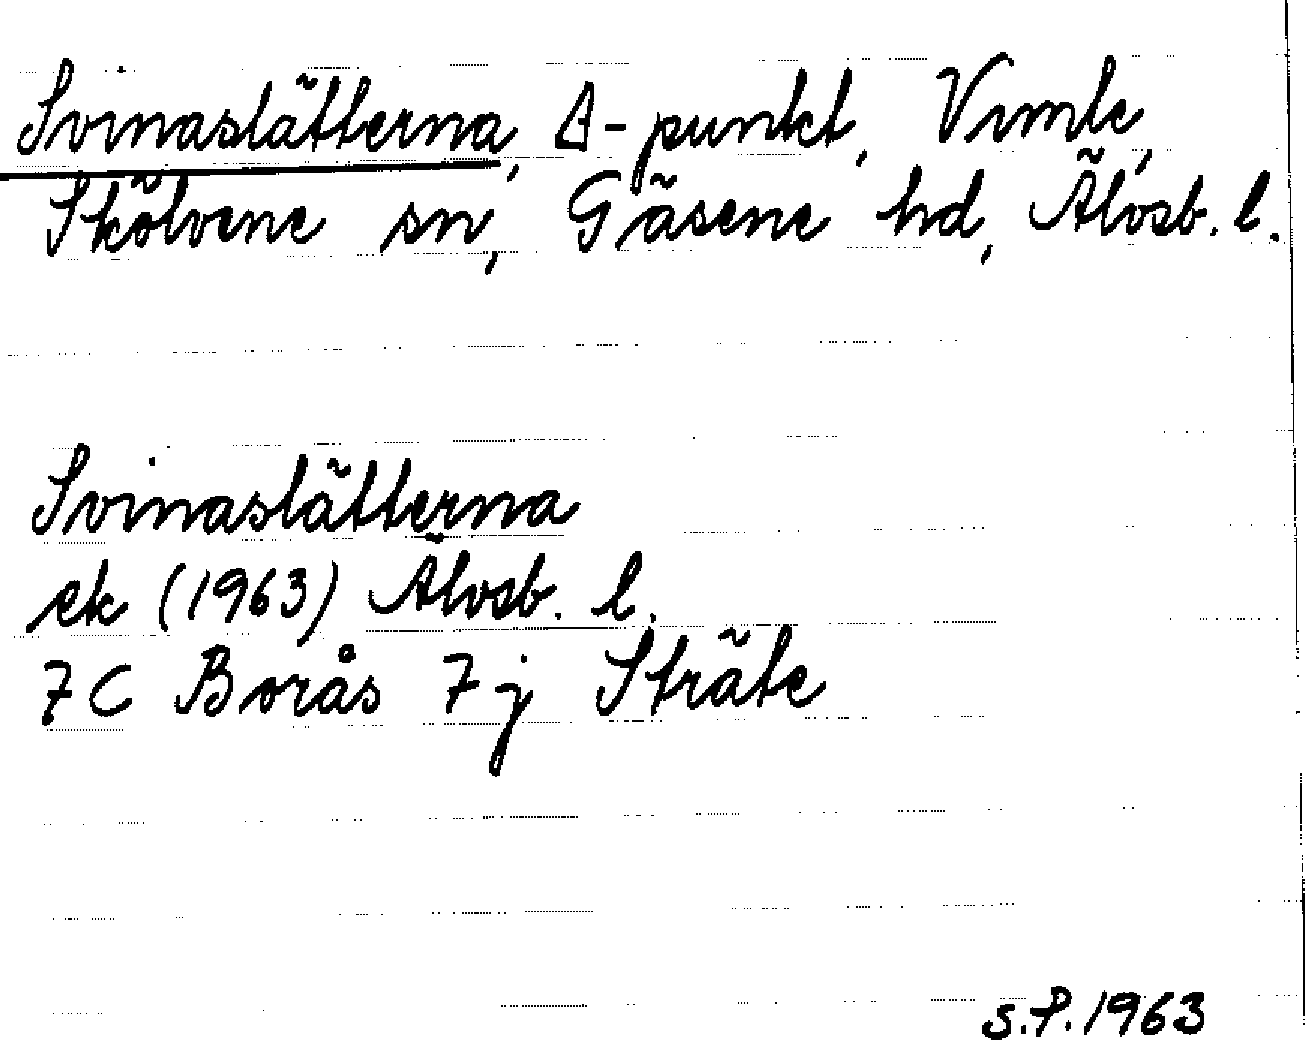 Svinaslätterna, Δ-punkt, Vimle,
Skölvene sn, Gäsene hd, Älvsb. l.
Svinaslätterna
ek (1963) Älvsb. l.
7C Borås 7j Sträte
S.P. 1963